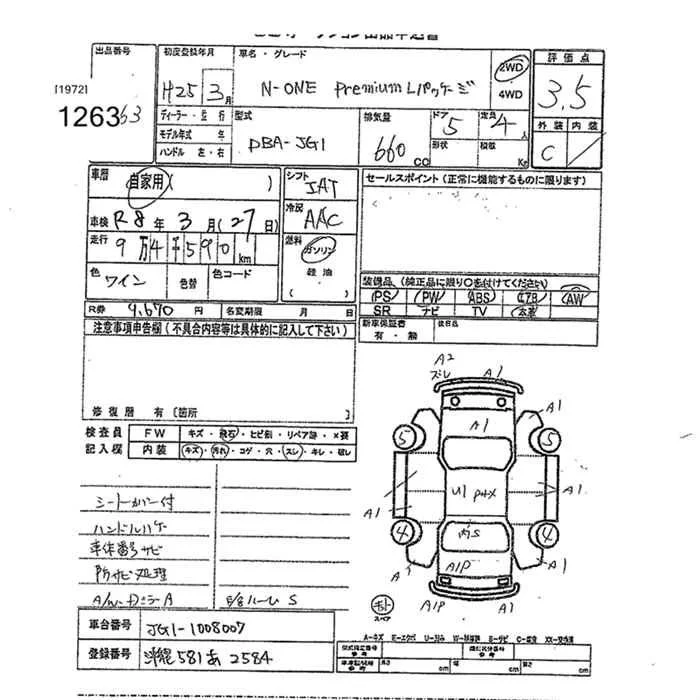 出品番号
[1972]
12633
初度登録年月
H25 3月
車名・グレード
N-ONE Premium Lパッケージ
2WD
4WD
評価点
3.5
外装 内装
C
ディーラー・並行
モデル年式 年
ハンドル 左・右
型式
DBA-JG1
排気量
660 CC
ドア 5
定員 4人
形状
積載 Kg
車歴
自家用( )
車検 R8年3月(27日)
走行 9万4千590km
色 ワイン
色替
色コード
シフト
IAT
冷房
AAC
燃料
ガソリン
軽油
( )
セールスポイント(正常に機能するものに限ります)
装備品(純正品に限り○を付けてください)
PS PW ABS エアB AW
SR ナビ TV 本革
新車保証書
有・無
後日品
R券 9,670円
名変期限 月 日
注意事項申告欄(不具合内容等は具体的に記入して下さい)
修復歴 有〔箇所
検査員
記入欄
FW キズ・飛石・ヒビ割・リペア跡・×要
内装 キズ・汚れ・コゲ・穴・スレ・キレ・破レ
シートカバー付
ハンドルハゲ
車体番号サビ
防サビ処理
A/W・ドミラーA
F/Bルーム S
車台番号
JG1-1008007
登録番号
沖縄581あ2584
A2
ズレ
A1
A1
A1
A1
5
5
U1
A1
A1
A1
4
4
内S
A1P
A1
A1P
A1
スペア
A=キズ E=エクボ U=凹み
長さ cm
幅 cm
高さ cm